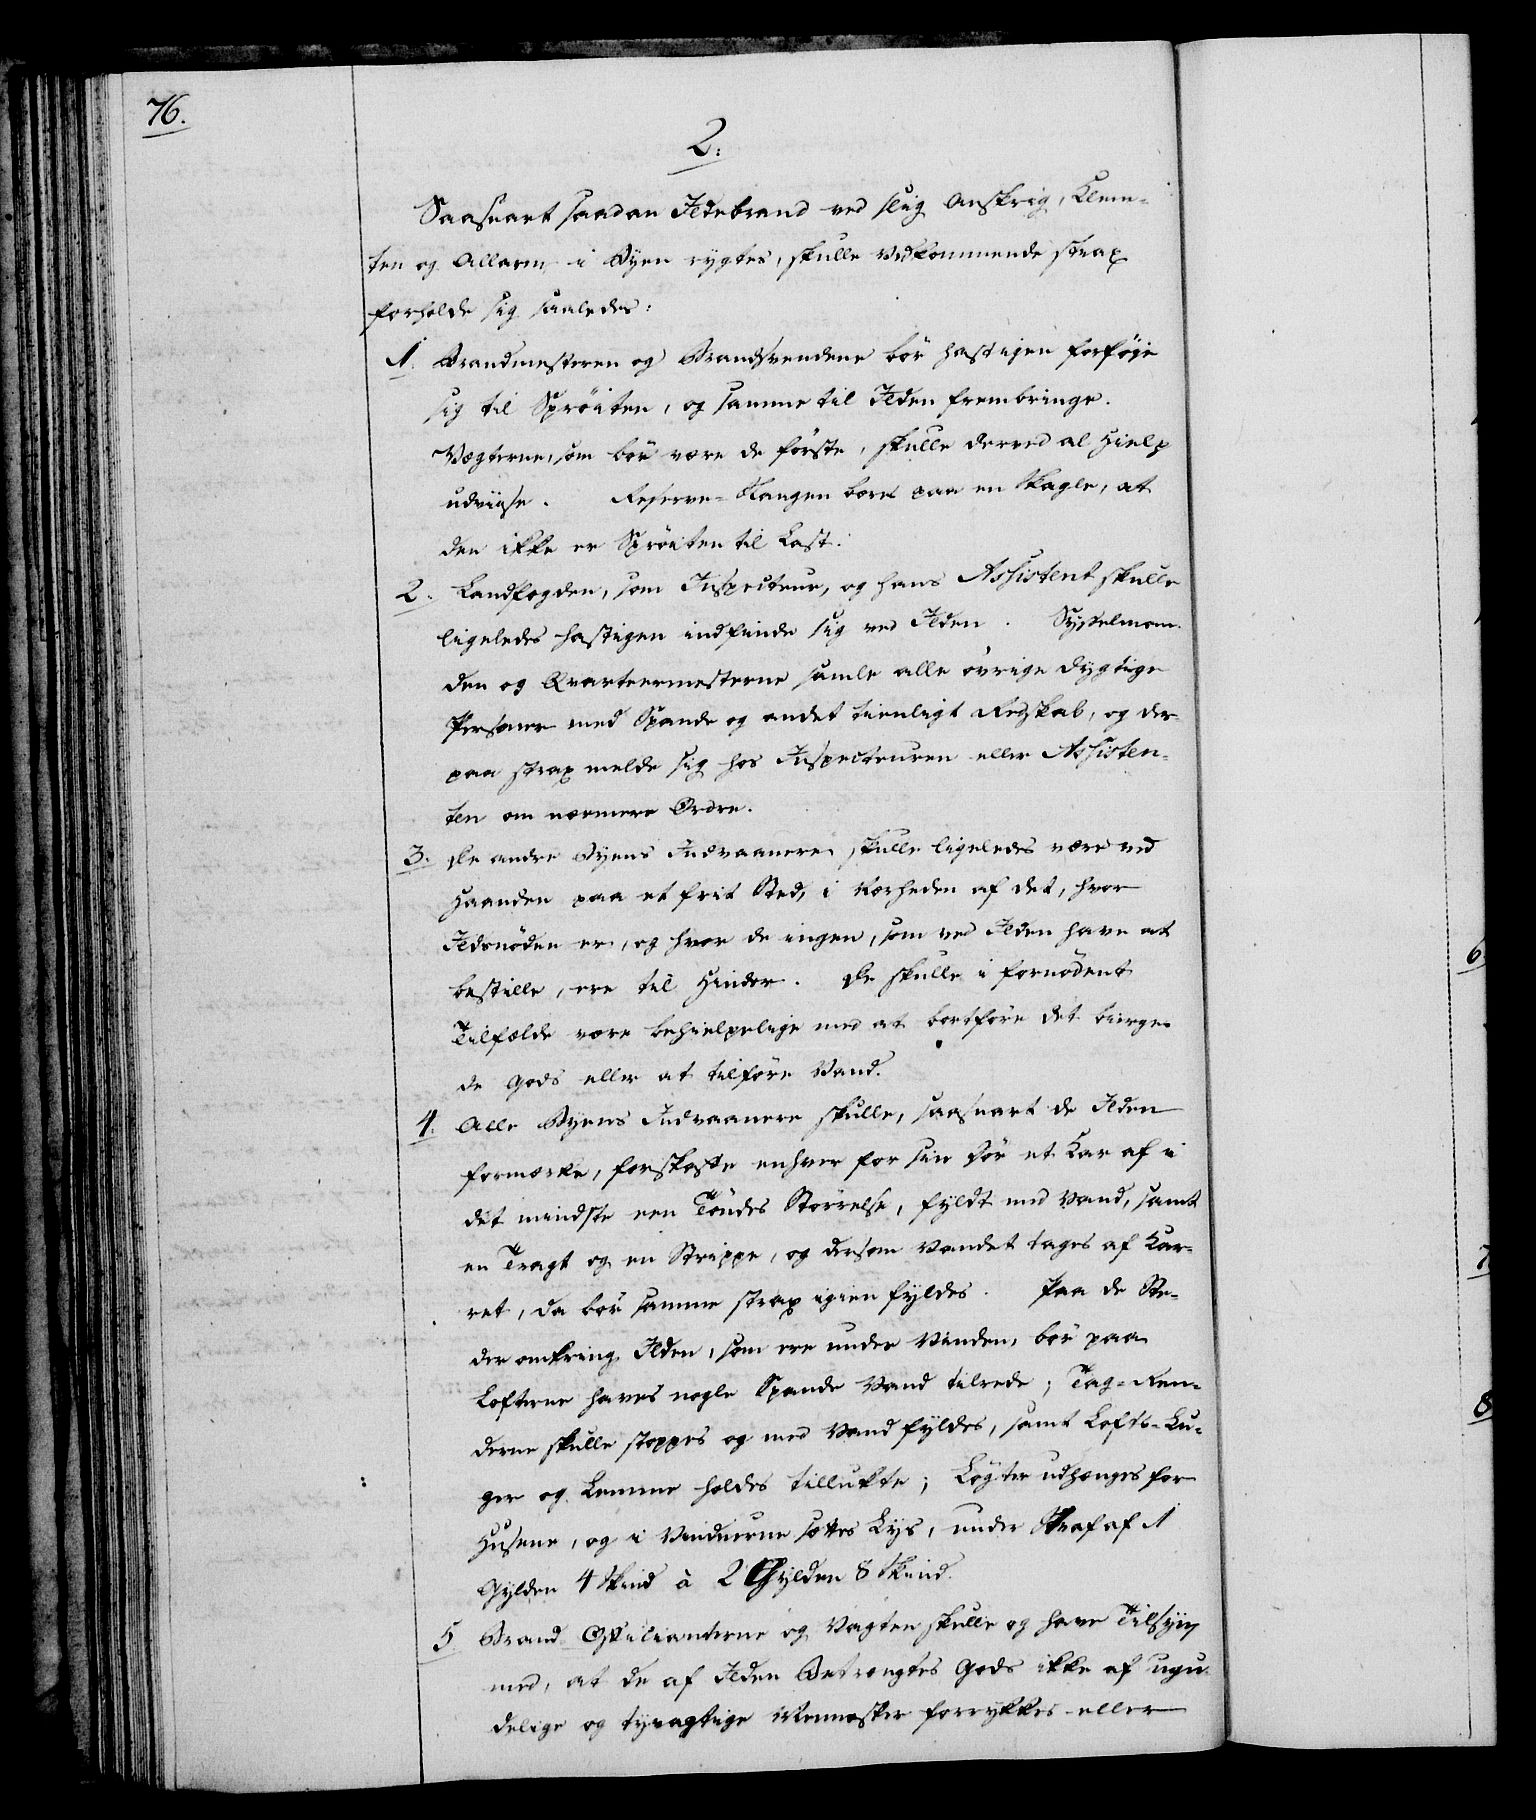 76.
2.
Saasnart saadan Ildebrand ved slig Anskrig, Klem-
ten og Allarm i Byen rygtes, skulle Vedkommende strax
forholde sig saaledes:
1. Brandmesteren og Brandsvendene bör hastigen forföje
sig til Spröiten, og samme til Ilden frembringe.
Vægterne, som bör være de förste, skulle derved al Hielp
udviise. Reserve-Stangen bæres paa en Skagle, at
den ikke er Spröiten til Last.
2. Landfogden, som Inspecteur, og hans Assistent skulle
ligeledes hastigen indfinde sig ved Ilden. Sysselman-
den og Qvarteermesterne samle alle övrige dygtige
Personer med Spande og andet tienligt Redskab, og der-
paa strax melde sig hos Inspecteuren eller Assisten-
ten om nærmere Ordre.
3. De andre Byens Indvaanere skulle ligeledes være ved
Haanden paa et frit Sted, i Nærheden af det, hvor
Ildsnöden er, og hvor de ingen, som ved Ilden have at
bestille, ere til Hinder. De skulle i fornödent
Tilfælde være behielpelige med at bortföre det bierge-
de Gods eller at tilföre Vand.
4. Alle Byens Indvaanere skulle, saasnart de Ilden
formærke, forskaffe enhver for sin Dör et Kar af i
det mindste een Töndes Störrelse, fyldt med Vand, samt
en Tragt og en Strippe, og dersom Vandet tages af Kar-
ret, da bör samme strax igien fyldes. Paa de Ste-
der omkring Ilden, som ere under Vinden, bör paa
Lofterne haves nogle Spande Vand tilrede; Tag-Ren-
derne skulle stoppes og med Vand fyldes, samt Lofts-Lu-
ger og Lemme holdes tillukte; Lögter udhænges for
Husene, og i Vinduerne sættes Lys, under Straf af 1
Gylden 4 Skind à 2 Gylden 8 Skind.
5 Brand-Officianterne og Vagten skulle og have Tilsyn
med, at de af Ilden Betrængtes Gods ikke af ugu-
delige og tyvagtige Mennesker forrykkes eller
6
7
8